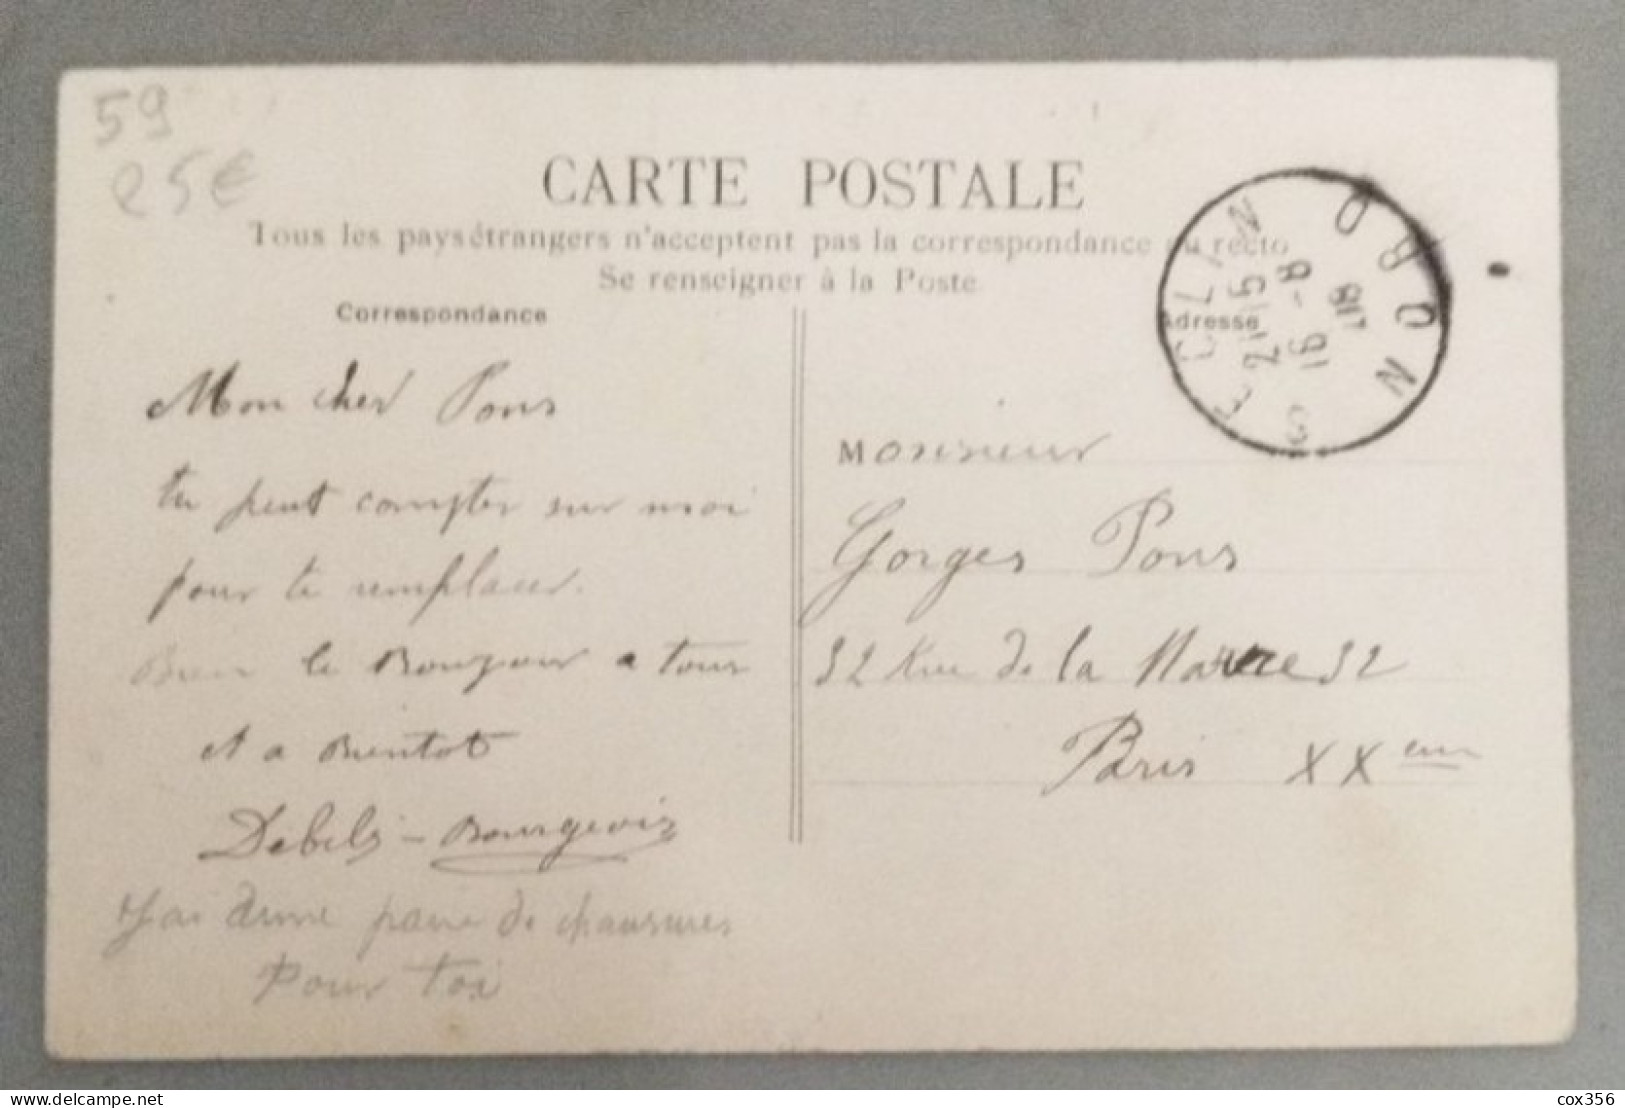 59
25€
CARTE POSTALE
Tous les pays étrangers n'acceptent pas la correspondance au recto
Se renseigner à la Poste
Correspondance
Adresse
Mon cher Pons
tu peut compter sur moi
pour te remplacer.
Bien le Bonjour a tous
et a Bientot
Debels - Bourgeois
J'ai une paire de chaussures
Pour toi
Monsieur
Gorges Pons
32 Rue de la Mare 32
Paris XXem
NORD
16-8
cox356
www.delcampe.net